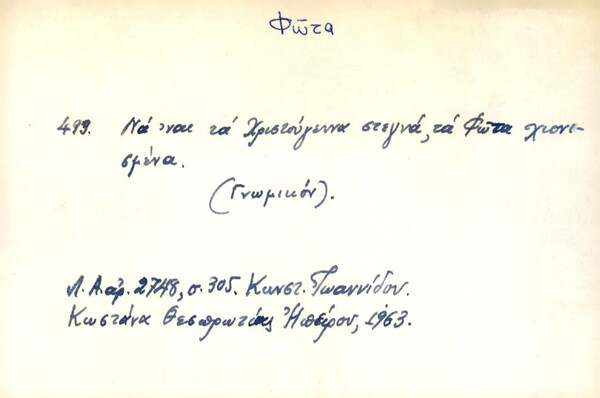 Φῶτα
499. Νά 'ναι τά Χριστούγεννα στεγνά, τά Φῶτα χιονι-
σμένα.
(Γνωμικόν).
Λ.Α. ἀρ. 2748, σ. 305. Κωνστ. Ἰωαννίδου.
Κωστάνα Θεσπρωτίας Ἠπείρου, 1963.